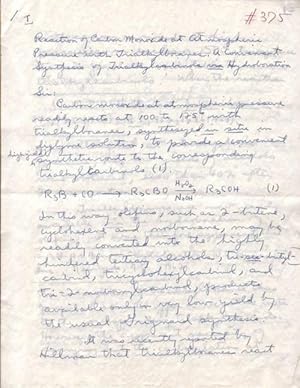 I
#375
Reaction of Carbon Monoxide at Atmospheric
Pressure with Trialkylboranes. A Convenient
Synthesis of Trialkylcarbinols via Hydroboration
Sir:
Carbon monoxide at atmospheric pressure
readily reacts at 100 to 125° with
trialkylboranes, synthesized in situ in
diglyme solution, to provide a convenient
synthetic route to the corresponding
trialkylcarbinols (1).
R₃B + CO → R₃CBO H₂O₂ NaOH → R₃COH (1)
In this way olefins, such as 2-butene,
cyclohexene and norbornene, may be
readily converted into the highly
hindered tertiary alcohols, tri-sec-butyl-
carbinol, tricyclohexylcarbinol, and
tri-2-norbornylcarbinol, products
available only in very low yield by
the usual Grignard synthesis.
It was recently reported by
Hillman that trialkylboranes react